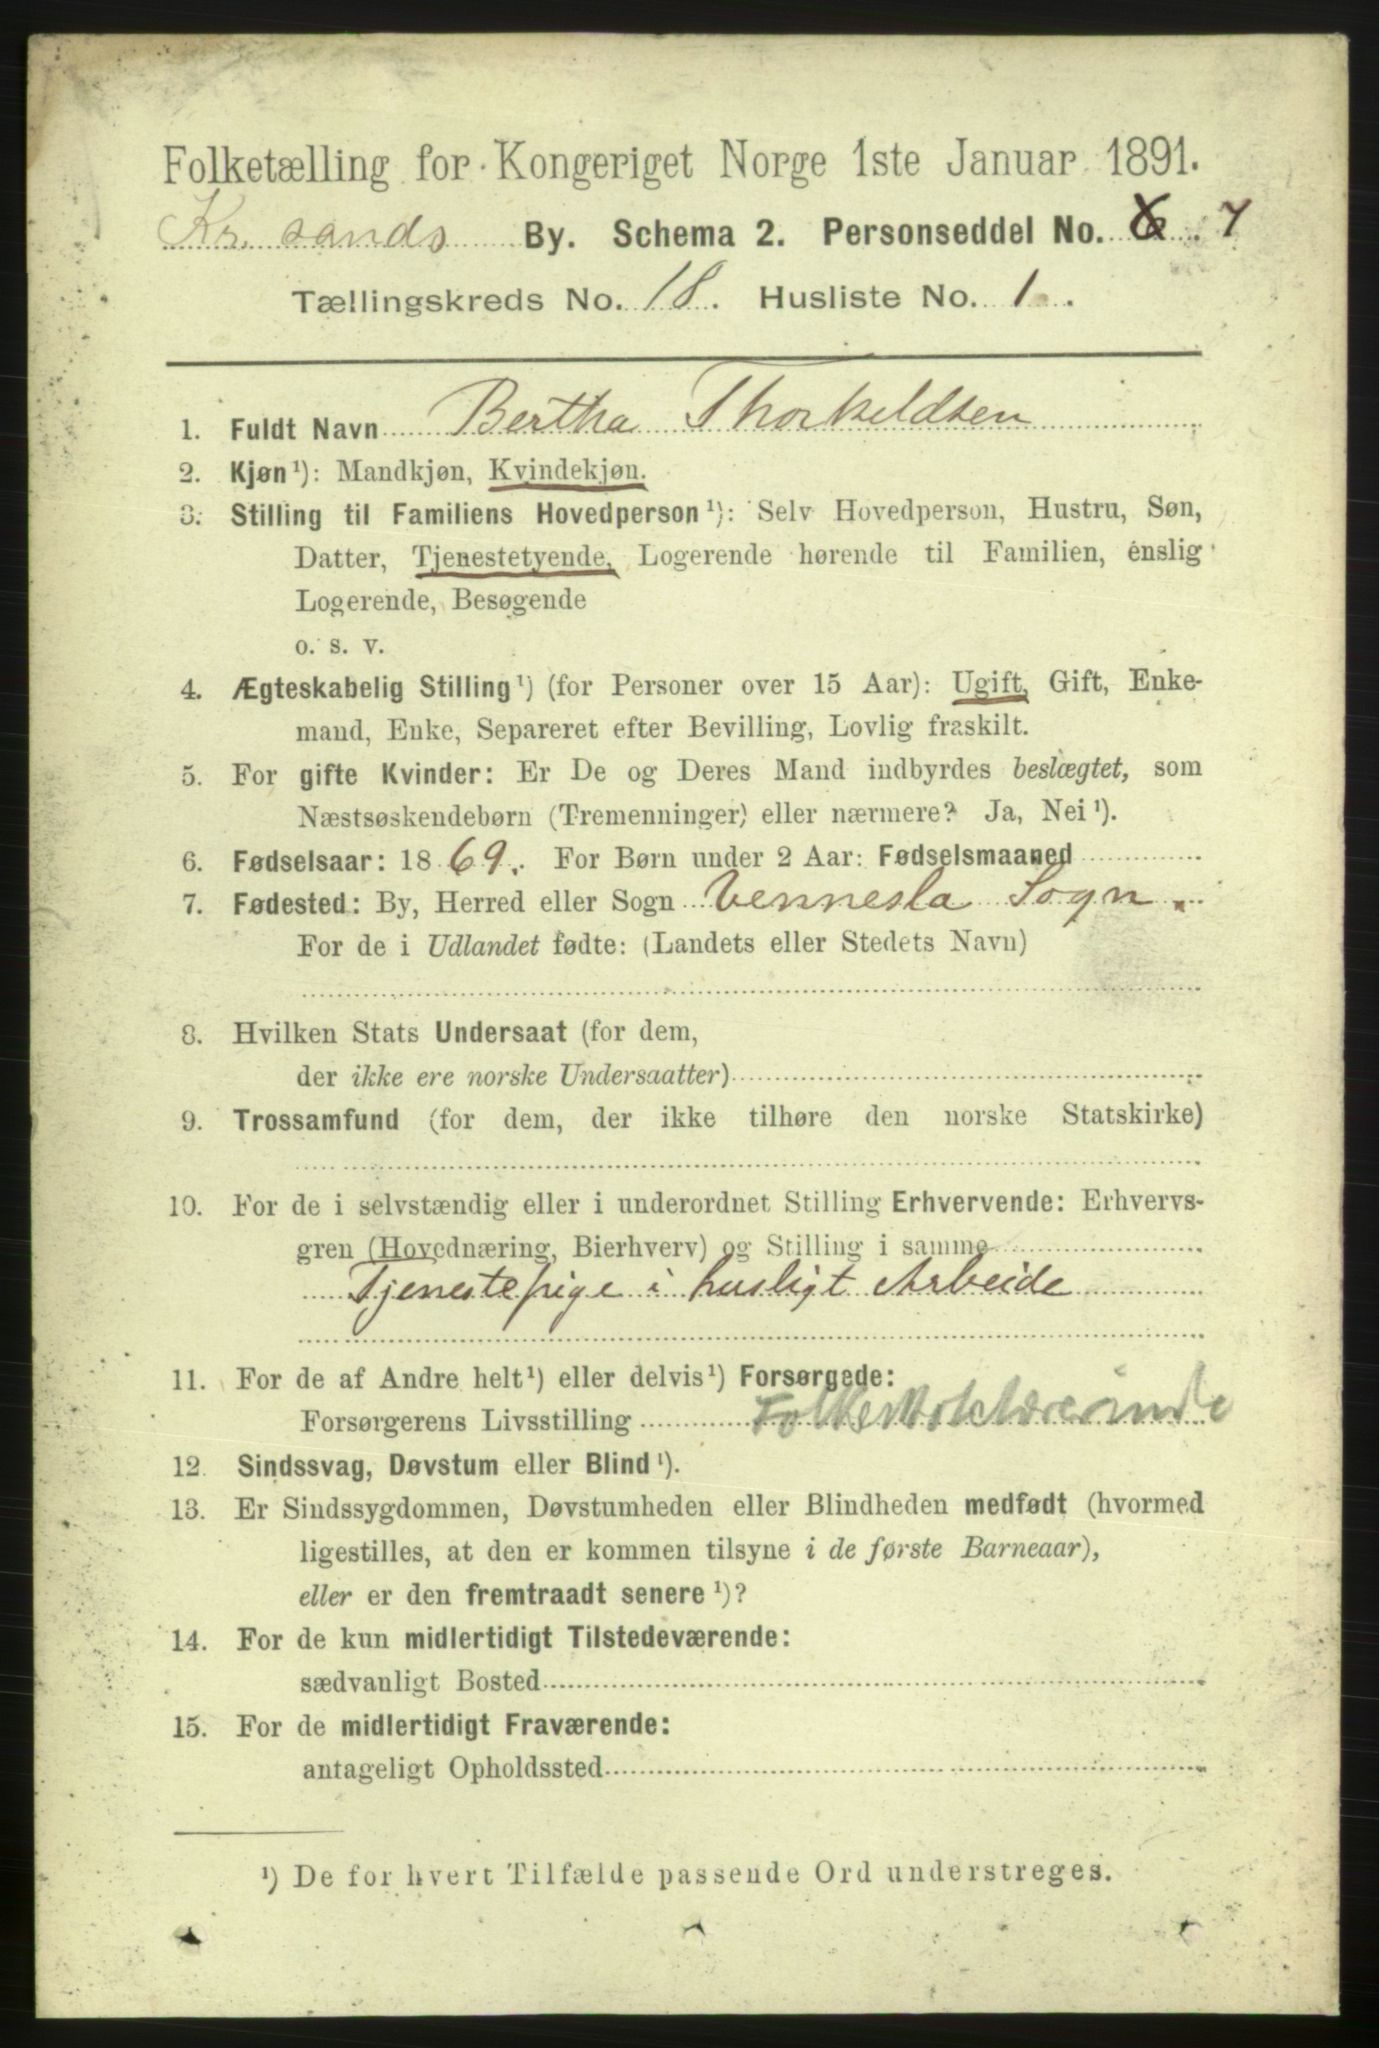 Folketælling for Kongeriget Norge 1ste Januar 1891.
Kr. sands By. Schema 2. Personseddel No. 6 7
Tællingskreds No. 18. Husliste No. 1.
1. Fuldt Navn Bertha Thorkeldsen
2. Kjøn¹): Mandkjøn, Kvindekjøn.
3. Stilling til Familiens Hovedperson¹): Selv Hovedperson, Hustru, Søn,
Datter, Tjenestetyende, Logerende hørende til Familien, enslig
Logerende, Besøgende
o. s. v.
4. Ægteskabelig Stilling¹) (for Personer over 15 Aar): Ugift, Gift, Enke-
mand, Enke, Separeret efter Bevilling, Lovlig fraskilt.
5. For gifte Kvinder: Er De og Deres Mand indbyrdes beslægtet, som
Næstsøskendebørn (Tremenninger) eller nærmere? Ja, Nei¹).
6. Fødselsaar: 1869. For Børn under 2 Aar: Fødselsmaaned
7. Fødested: By, Herred eller Sogn Vennesla Sogn.
For de i Udlandet fødte: (Landets eller Stedets Navn)
8. Hvilken Stats Undersaat (for dem,
der ikke ere norske Undersaatter)
9. Trossamfund (for dem, der ikke tilhøre den norske Statskirke)
10. For de i selvstændig eller i underordnet Stilling Erhvervende: Erhvervs-
gren (Hovednæring, Bierhverv) og Stilling i samme
Tjenestepige i husligt Arbeide
11. For de af Andre helt¹) eller delvis¹) Forsørgede:
Forsørgerens Livsstilling Folkeskolelærerinde
12. Sindssvag, Døvstum eller Blind¹).
13. Er Sindssygdommen, Døvstumheden eller Blindheden medfødt (hvormed
ligestilles, at den er kommen tilsyne i de første Barneaar),
eller er den fremtraadt senere¹)?
14. For de kun midlertidigt Tilstedeværende:
sædvanligt Bosted
15. For de midlertidigt Fraværende:
antageligt Opholdssted
¹) De for hvert Tilfælde passende Ord understreges.